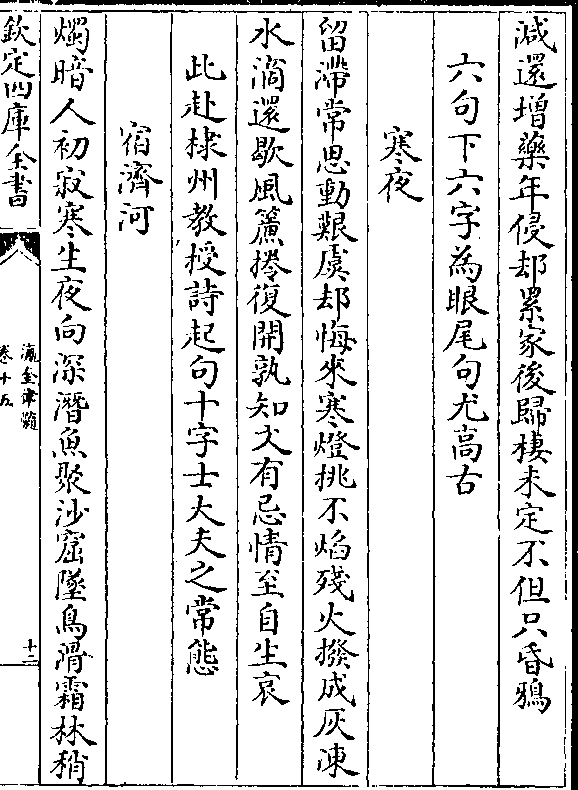 減還增藥年侵却累家後歸棲未定不但只昏鴉
六句下六字為眼尾句尤高古
寒夜
留滯常思動艱虞却悔來寒燈挑不焰殘火撥成灰凍
水滴還歇風簾捲復開孰知文有忌情至自生哀
此赴棣州教授詩起句十字士大夫之常態
宿濟河
燭暗人初寂寒生夜向深潛魚聚沙窟墜鳥滑霜林稍
欽定四庫全書
瀛奎律髓
卷十五
十二